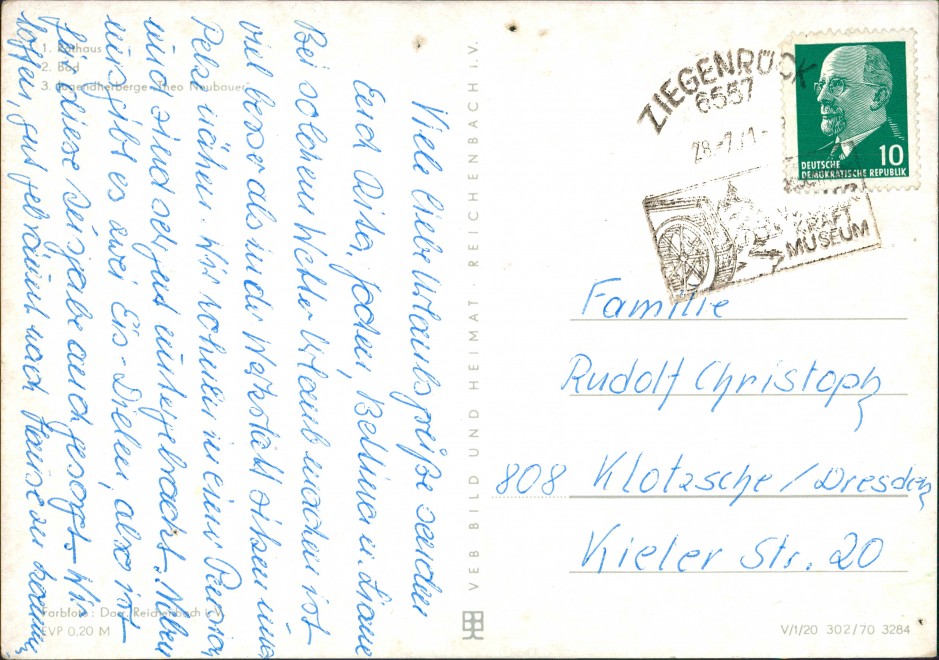 1. Rathaus
2. Bad
3. Jugendherberge Theo Neubauer
Viele liebe Urlaubsgrüße senden
Euch Rita, Jochen, Bettina u. Liane
Bei solchem Wetter Urlaub machen ist
viel besser als in der Werkstatt sitzen und
Pelze nähen. Wir wohnen in einer Pension
und sind sehr gut untergebracht. Neben
uns gibt es zwei Eis-Dielen, also ist
für diese Seite auch gesorgt. Wir
hoffen, gut gebräunt nach Hause zu kommen
Farbfoto: Dag, Reichenbach i. V.
EVP 0,20 M
VEB BILD UND HEIMAT · REICHENBACH I. V.
ZIEGENRÜCK
6557
28.-7.71-
KRAFT
MUSEUM
10
DEUTSCHE
DEMOKRATISCHE REPUBLIK
Familie
Rudolf Christoph
808 Klotzsche / Dresden
Kieler Str. 20
V/1/20 302/70 3284